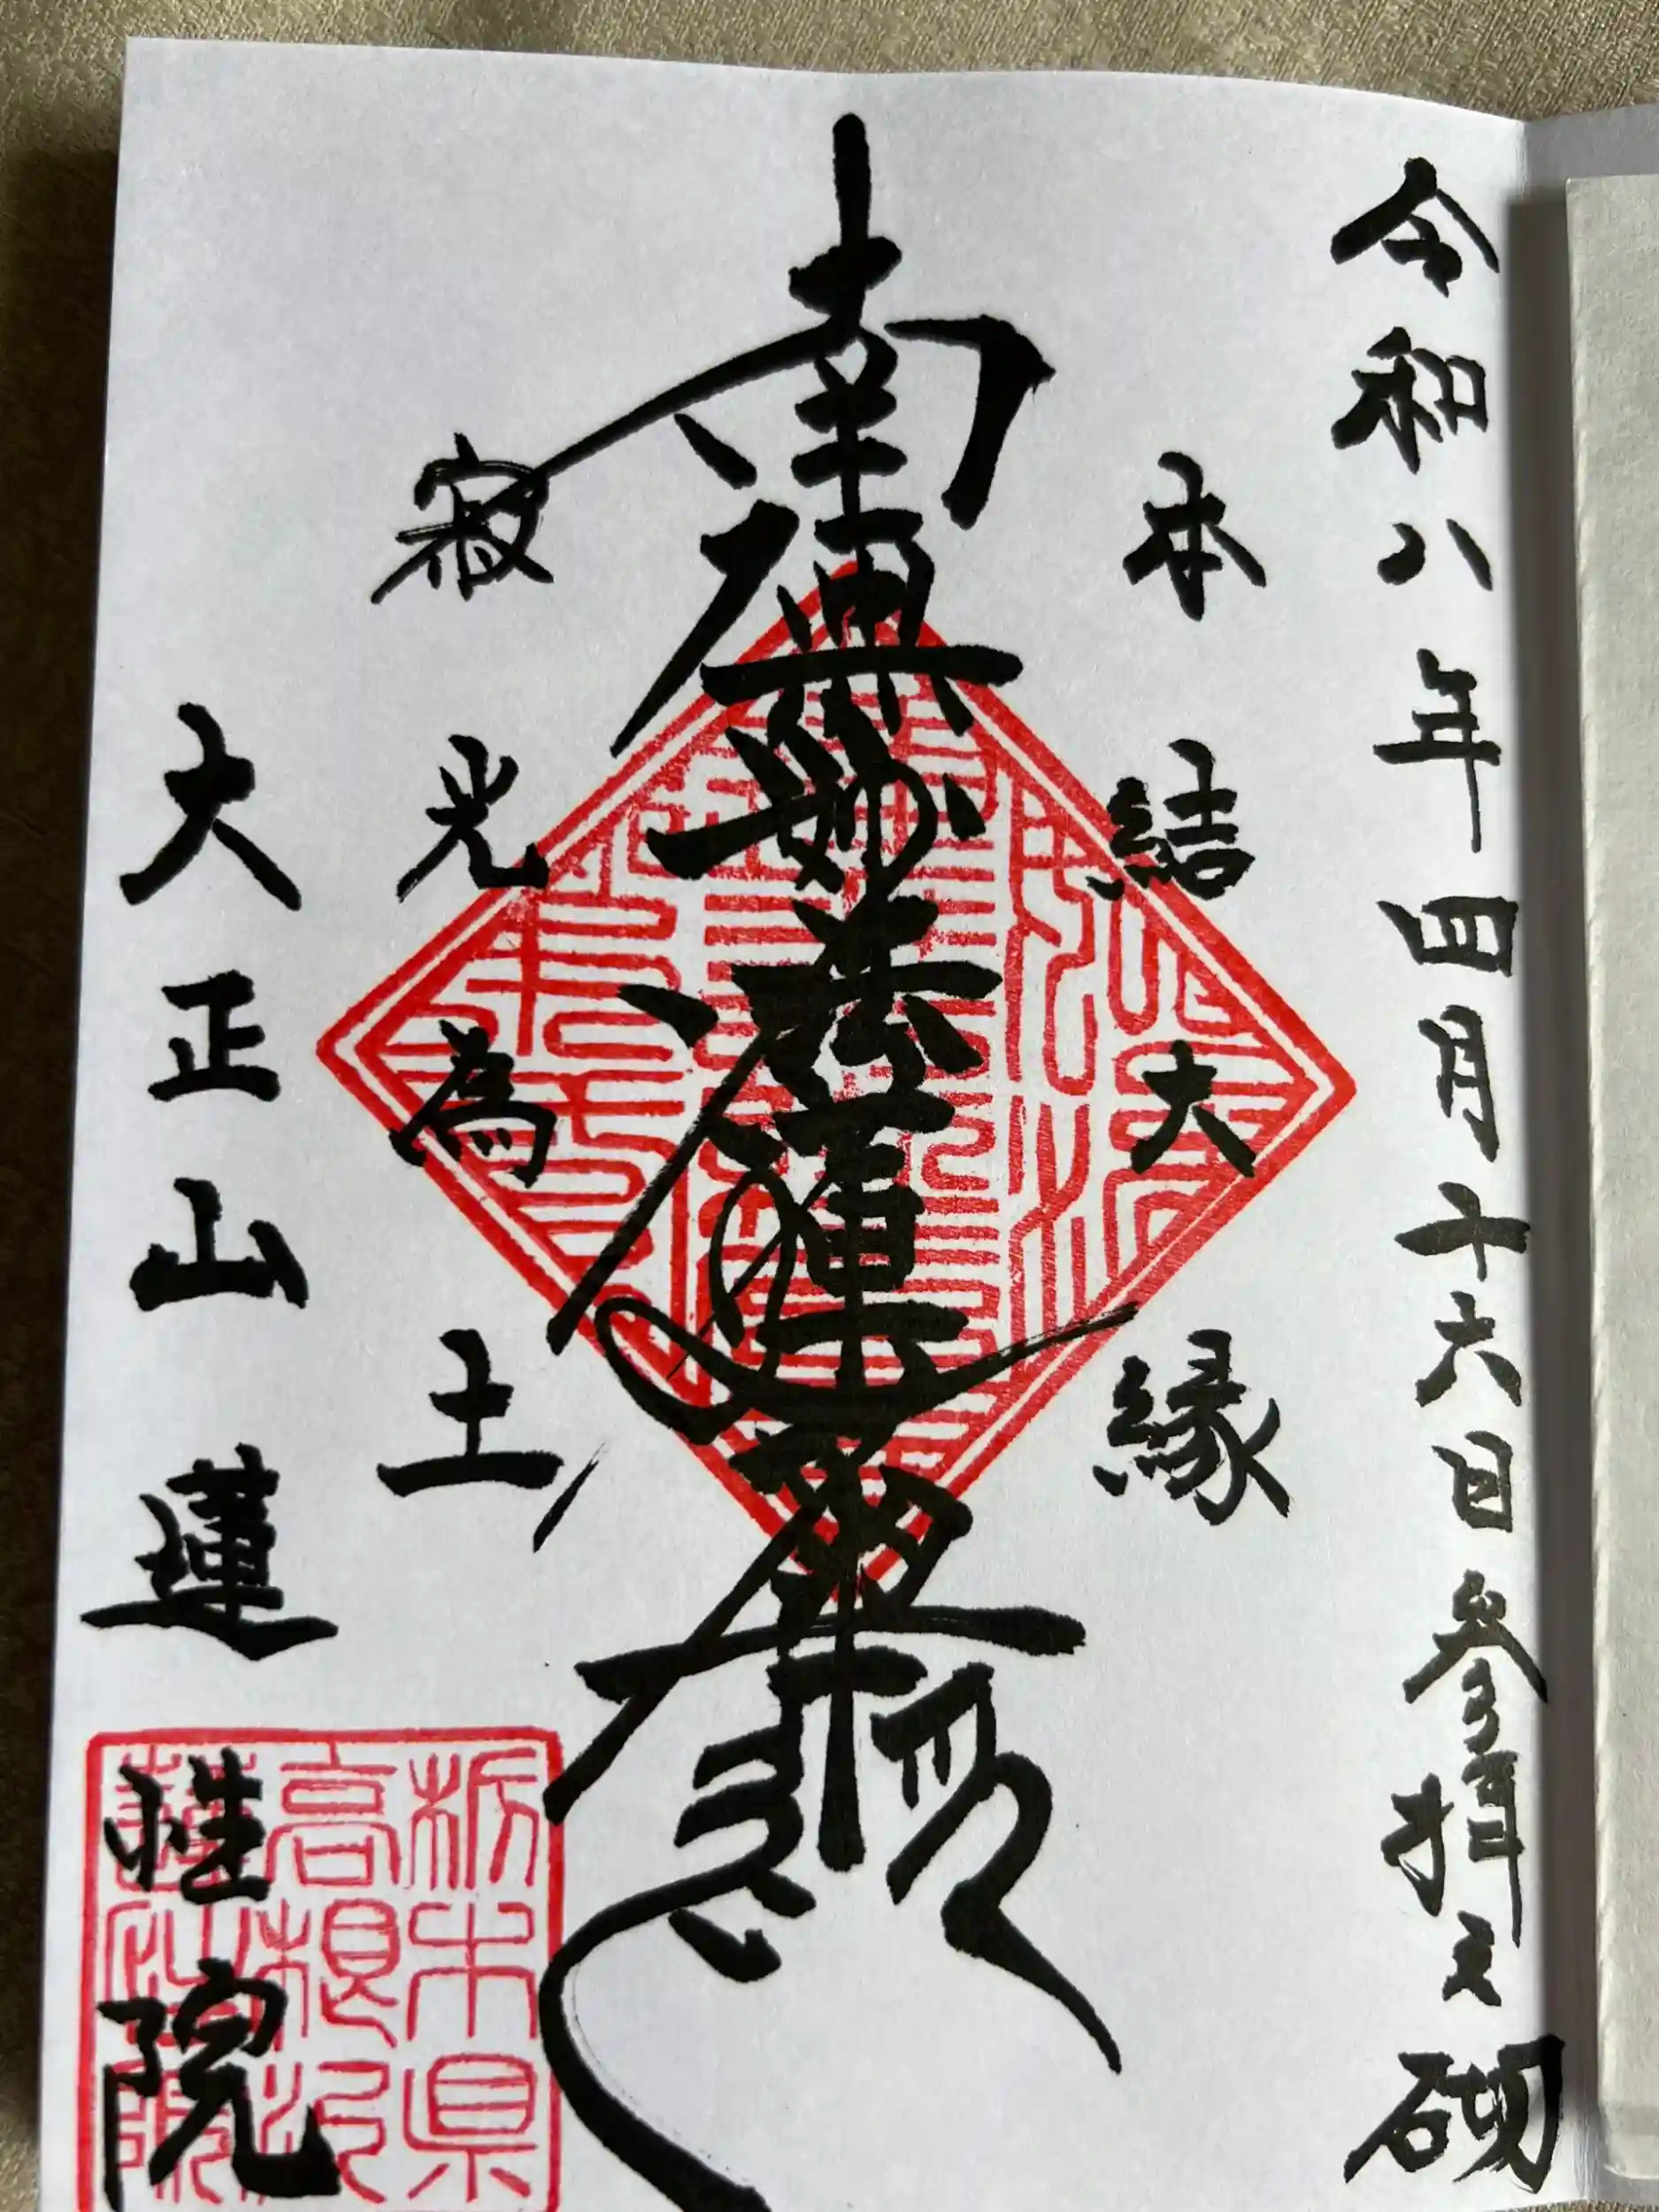 令和八年四月十六日参拝之砌
本結大縁
南無妙法蓮華經
寂光為土
大正山蓮性院
栃木県
高根沢
蓮性院